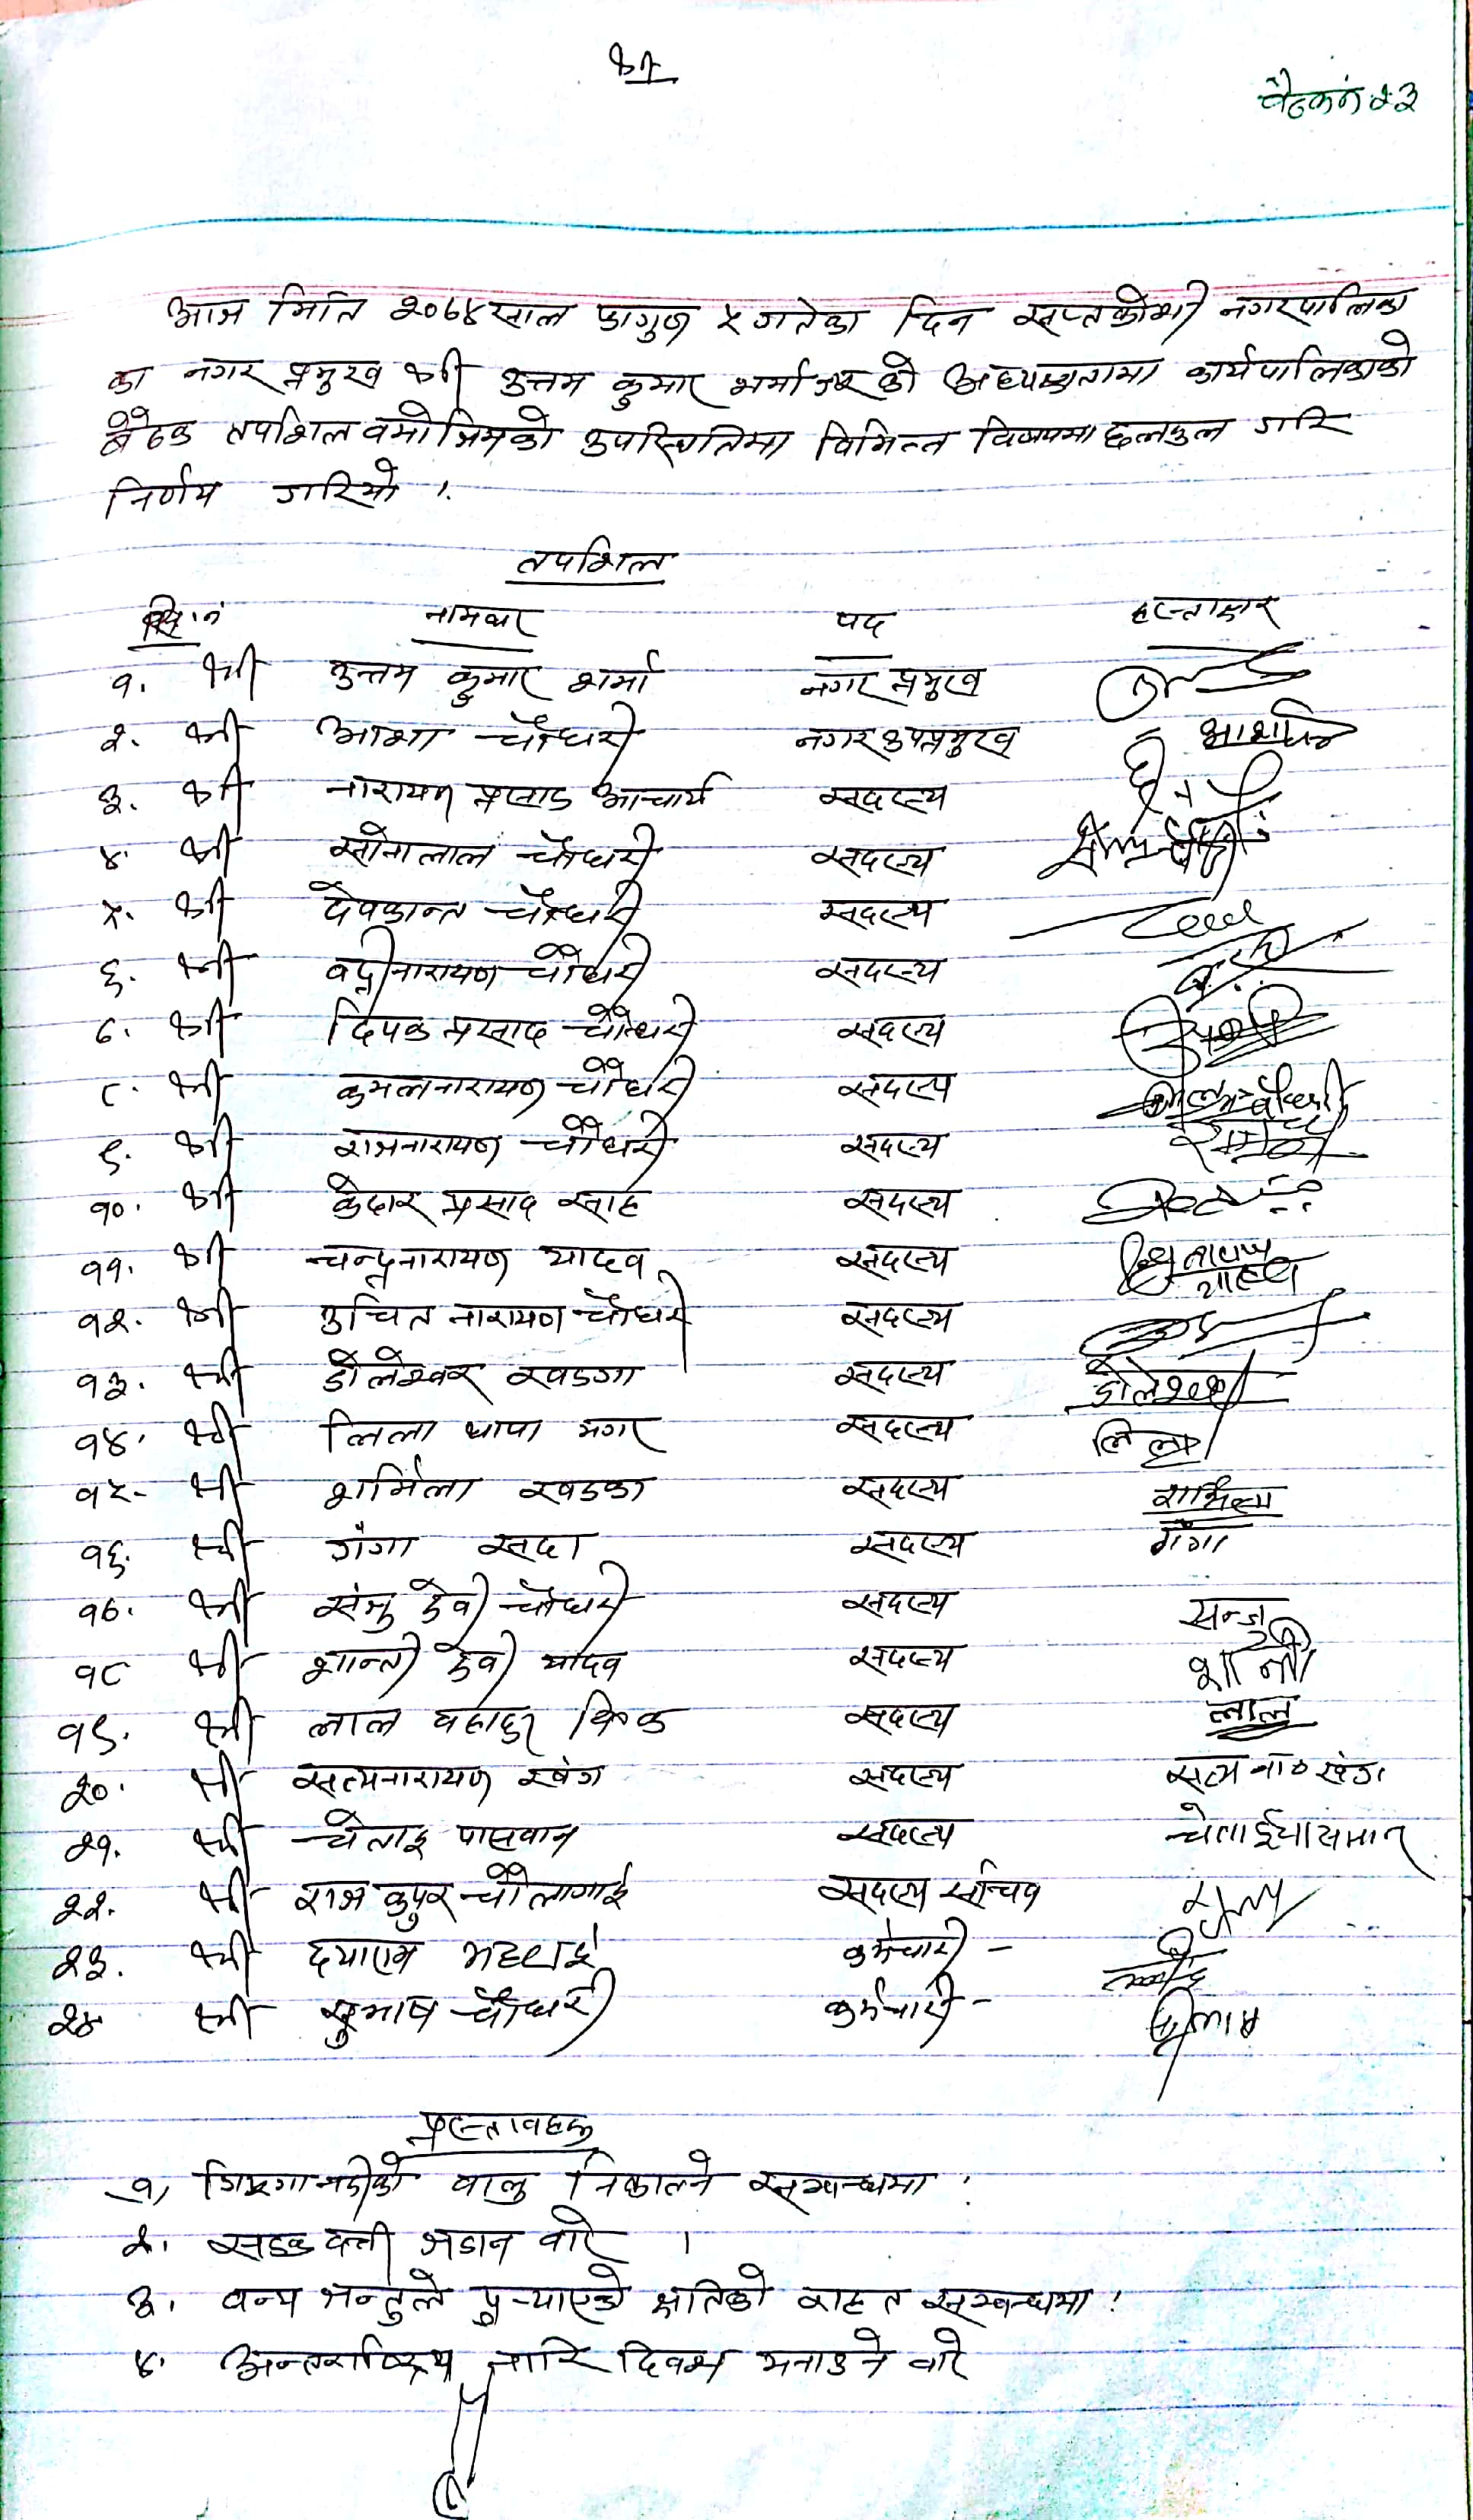 श्री
बैठक नं २३
आज मिति २०७४ साल फागुण ५ गतेका दिन सप्तकोशी नगरपालिका
का नगर प्रमुख श्री उत्तम कुमार शर्मा ज्यू को अध्यक्षतामा कार्यपालिकाको
बैठक तपशिल वमोजिमको उपस्थितिमा विभिन्न विषयमा छलफल गरि
निर्णय गरियो ।
तपशिल
सि.नं नामथर पद हस्ताक्षर
१. श्री उत्तम कुमार शर्मा नगर प्रमुख
२. श्री आशा चौधरी नगर उपप्रमुख आशा
३. श्री नारायण प्रसाद आचार्य सदस्य
४. श्री सोनालाल चौधरी सदस्य
५. श्री देवकान्त चौधरी सदस्य
६. श्री वद्रीनारायण चौधरी सदस्य
७. श्री दिपक प्रसाद चौधरी सदस्य
८. श्री कमलनारायण चौधरी सदस्य
९. श्री राजनारायण चौधरी सदस्य
१०. श्री केदार प्रसाद साह सदस्य
११. श्री चन्द्रनारायण यादव सदस्य
१२. श्री उचित नारायण चौधरी सदस्य
१३. श्री डोलेश्वर खडगा सदस्य डोलेश्वर
१४. श्री लिला थापा मगर सदस्य लिला
१५- श्री शर्मिला खडका सदस्य शर्मिला
१६. श्री गंगा सदा सदस्य गंगा
१७. श्री संजु देवी चौधरी सदस्य सन्जु
१८ श्री शान्ती देवी यादव सदस्य शान्ती
१९. श्री लाल वहादुर वि.क सदस्य लाल
२०. श्री सत्यनारायण खंग सदस्य सत्य ना० खंग
२१. श्री चेताइ पासवान सदस्य चेताई पासमान
२२. श्री राज कुपुर चौलागाई सदस्य सचिव
२३. श्री दयाराम भट्टराई कर्मचारी -
२४ श्री सुभाष चौधरी कर्मचारी -
प्रस्तावहरु
१, नदीको वालु निकाल्ने सम्वन्धमा ।
२. सडक वत्ती जडान वारे ।
३. वन्य जन्तुले पुर्‍याएको क्षतिको राहत सम्वन्धमा ।
४. अन्तर्राष्ट्रिय नारि दिवस मनाउने वारे